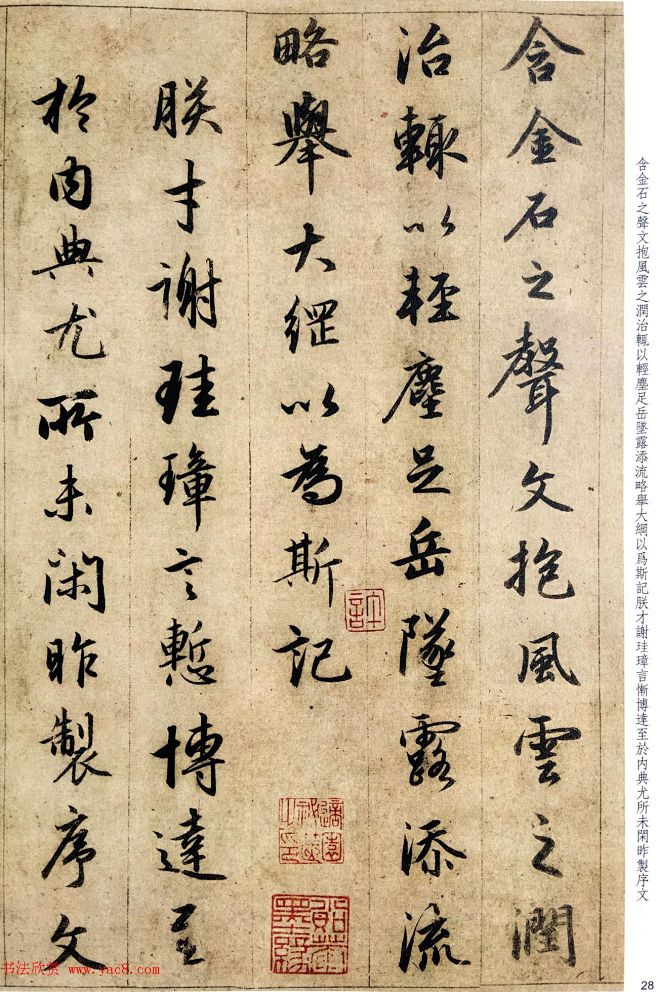 含金石之聲文抱風雲之潤
治輙以輕塵足岳墜露添流
略舉大綱以為斯記
朕才謝珪璋言慙博達至
於內典尤所未閑昨製序文
許
含金石之聲文抱風雲之潤治輒以輕塵足岳墜露添流略舉大綱以爲斯記朕才謝珪璋言慚博達至於内典尤所未閑昨製序文
书法欣赏 www.yac8.com
28